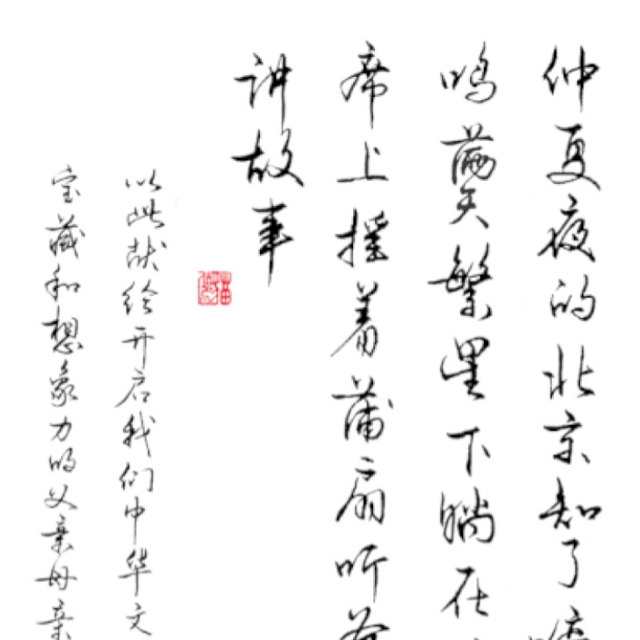 仲夏夜的北京知了
鸣满天繁星下躺在
席上摇着蒲扇听爷
讲故事
以此献给开启我们中华文
宝藏和想象力的父亲母亲